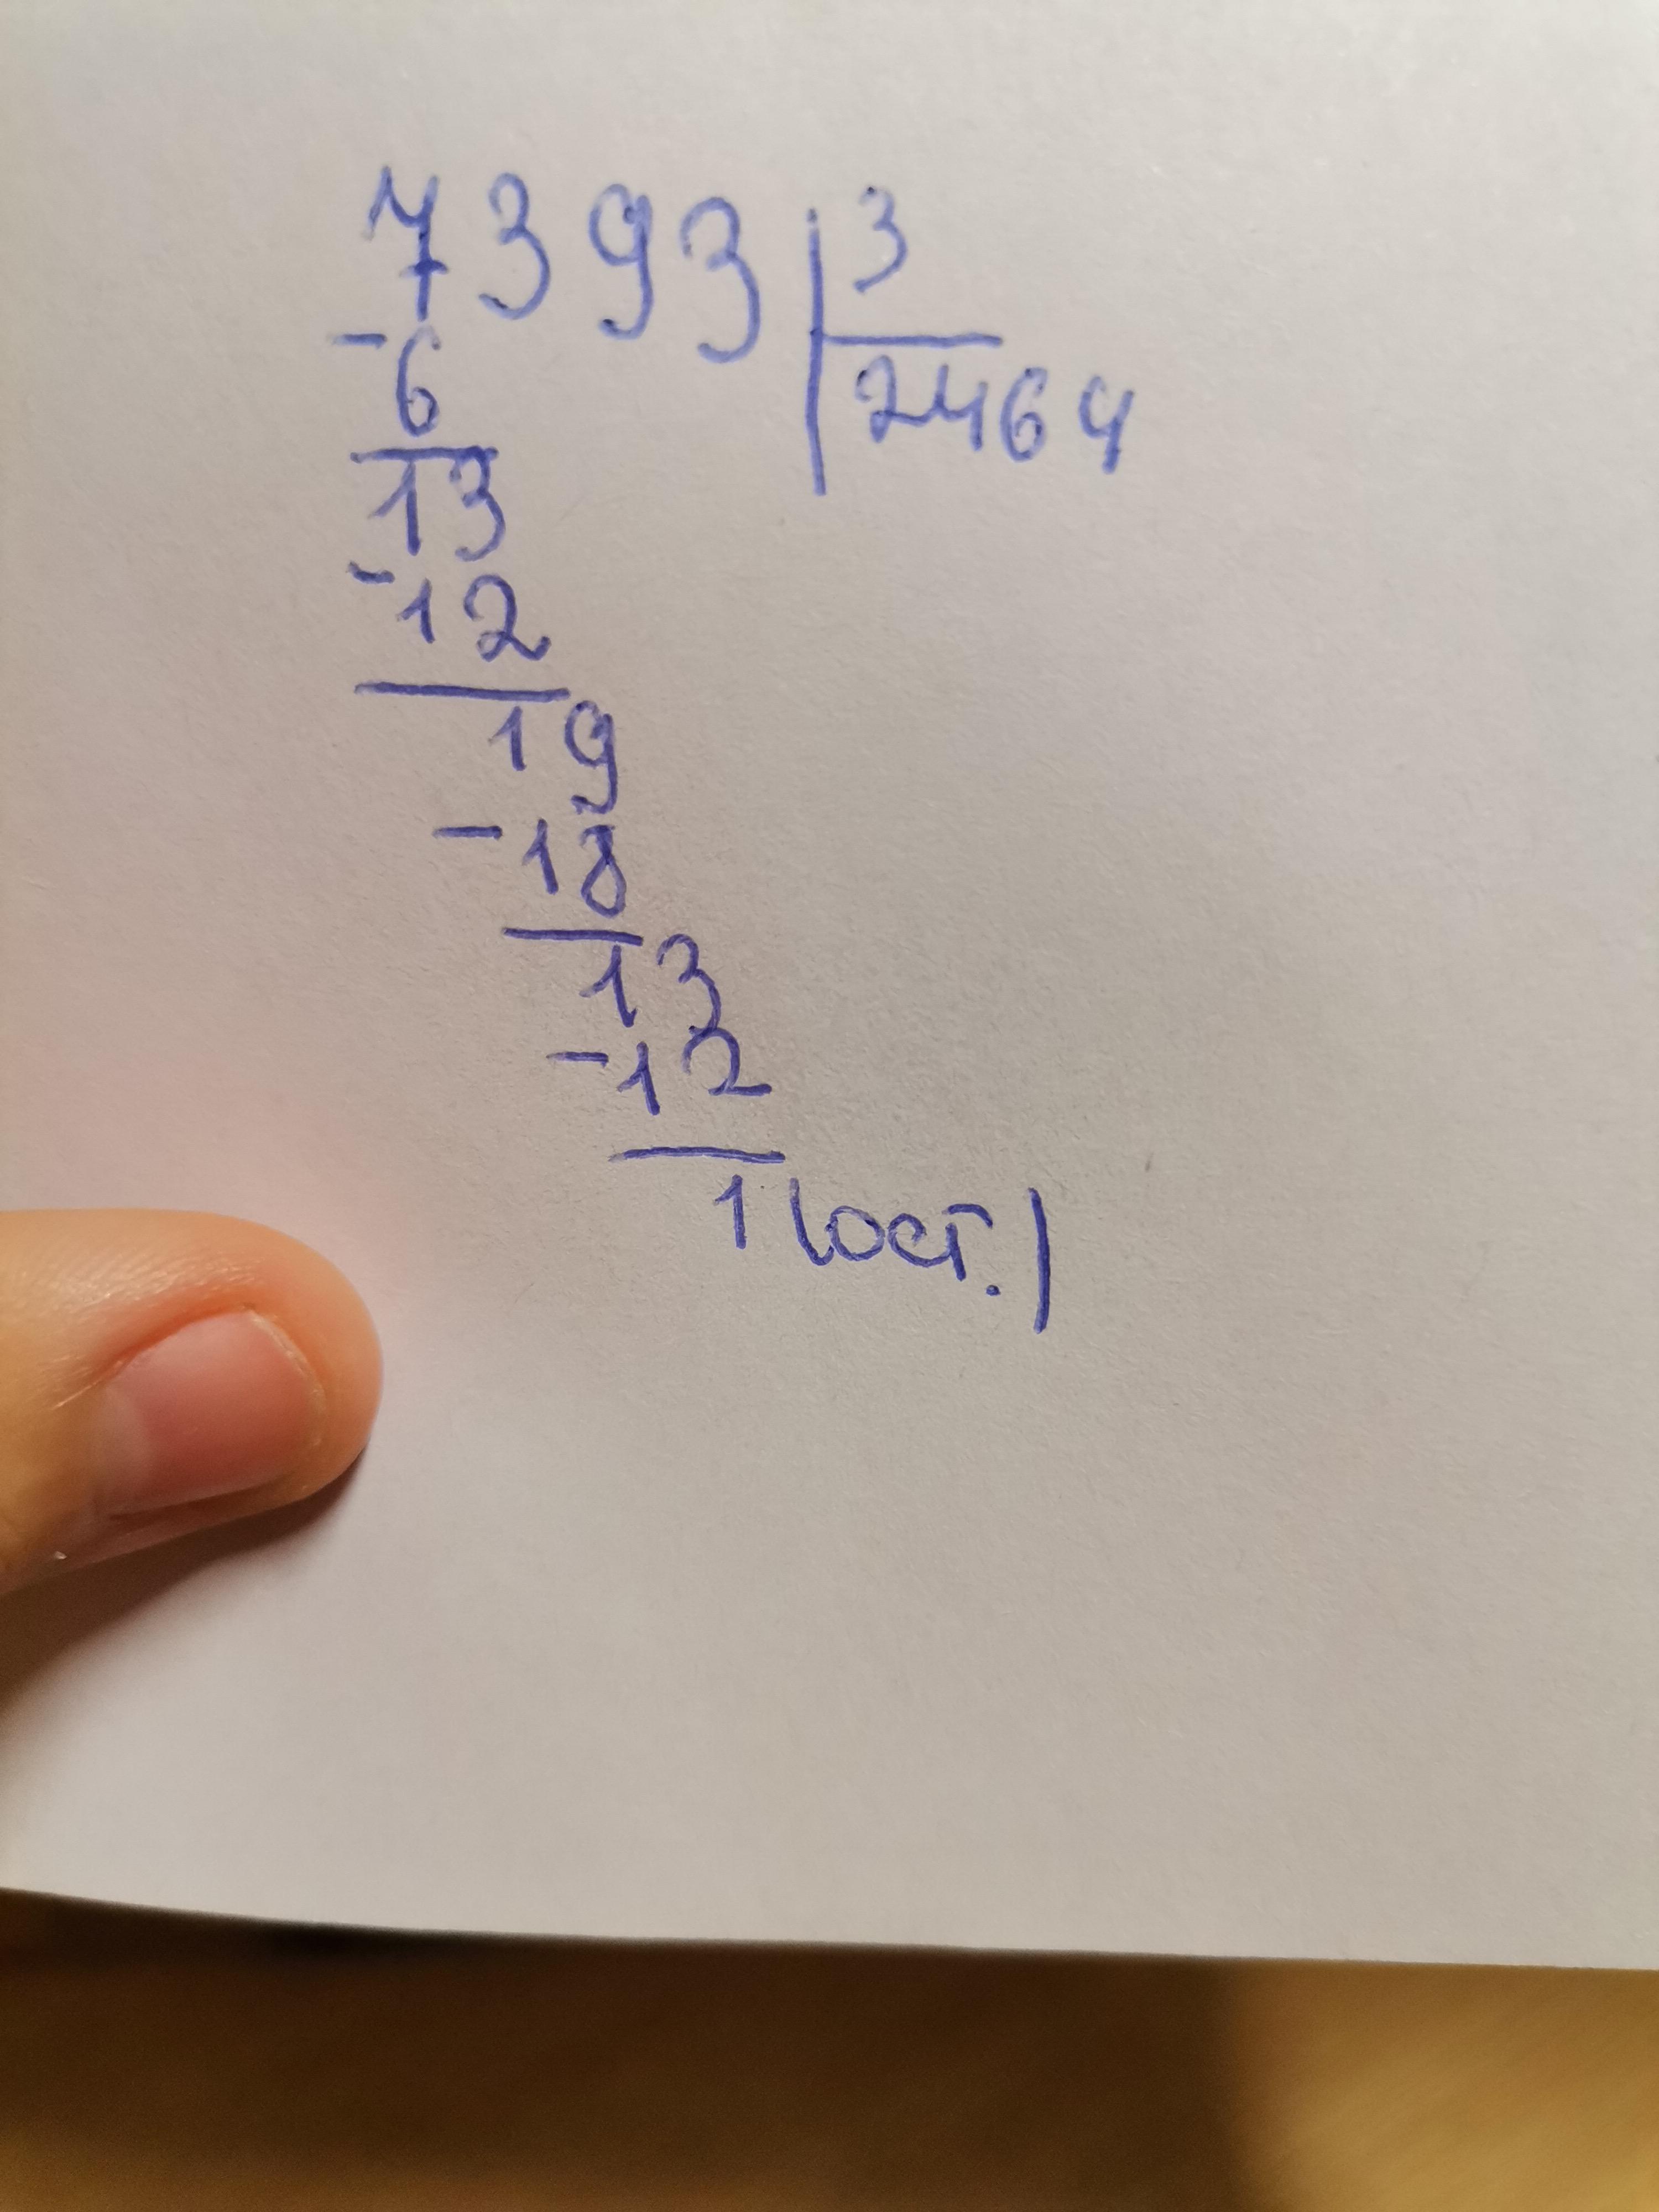 7393 | 3
-6 2464
13
-12
19
-18
13
-12
1 (ост.)